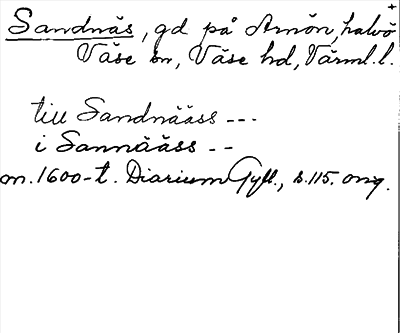 Sandnäs, gd på Arnön, halvö
Väse sn, Väse hd, Värml. l.
till Sandnääss ---
i Sannääss --
m. 1600-t. Diarium Gyll., s. 115. orig.